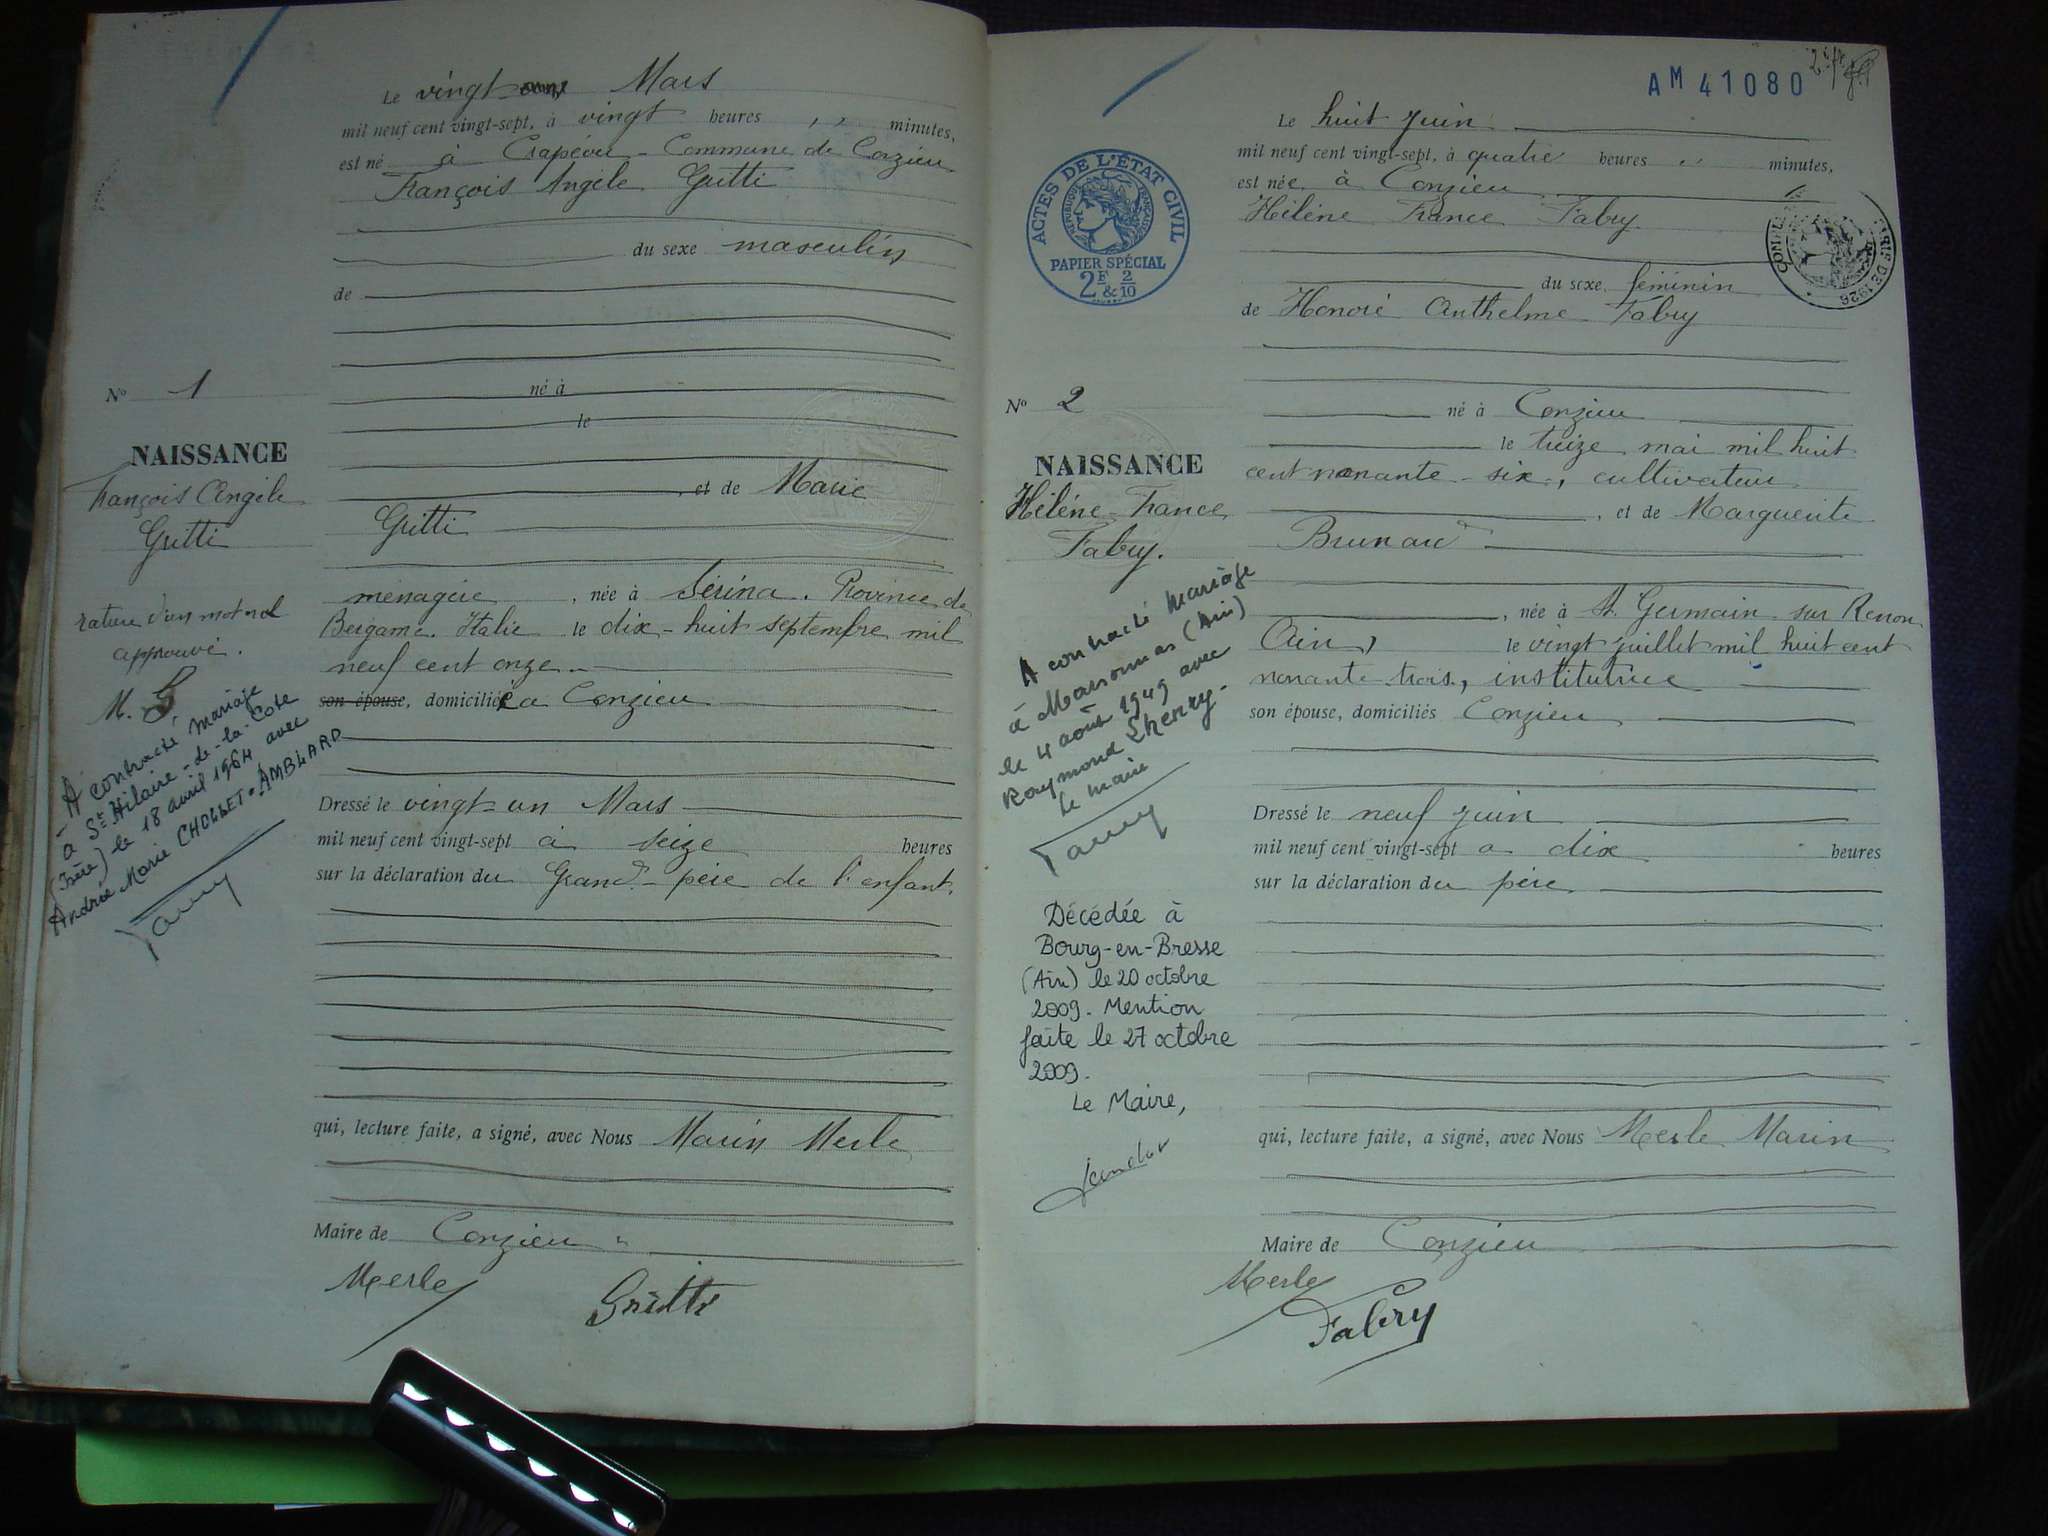 Le vingt Mars
mil neuf cent vingt-sept, à vingt heures ,, minutes,
est né à Crapéou - Commune de Conzieu
François Angèle Gritti
du sexe masculin
de
né à
le
, et de Marie
Gritti
ménagère , née à Sérina. Province de
Bergame. Italie le dix-huit septembre mil
neuf cent onze
son épouse, domiciliée à Conzieu
Dressé le vingt-un Mars
mil neuf cent vingt-sept à seize heures
sur la déclaration du Grand-père de l'enfant.
qui, lecture faite, a signé, avec Nous Marin Merle
Maire de Conzieu
Merle Gritti
N° 1
NAISSANCE
François Angèle
Gritti
rature d'un mot nul
approuvé.
M. G
- A contracté mariage
à St Hilaire-de-la-Cote
(Isère) le 18 avril 1964 avec
Andrée Marie CHOLLET-AMBLARD
AM 41080
Le huit Juin
mil neuf cent vingt-sept, à quatre heures ,, minutes,
est née à Conzieu
Hélène France Fabry
du sexe féminin
de Honoré Anthelme Fabry
né à Conzieu
le treize mai mil huit
cent nonante-six, cultivateur
, et de Marguerite
Brunard
, née à St Germain sur Renon
Ain, le vingt juillet mil huit cent
nonante trois, institutrice
son épouse, domiciliés Conzieu
Dressé le neuf juin
mil neuf cent vingt-sept à dix heures
sur la déclaration du père
qui, lecture faite, a signé, avec Nous Merle Marin
Maire de Conzieu
Merle
Fabry
ACTES DE L'ÉTAT CIVIL
RÉPUBLIQUE FRANÇAISE
PAPIER SPÉCIAL
2F & 2/10
N° 2
NAISSANCE
Hélène-France
Fabry.
A contracté mariage
à Marsonnas (Ain)
le 4 août 1949 avec
Raymond Lhenry.
Le maire
Décédée à
Bourg-en-Bresse
(Ain) le 20 octobre
2009. Mention
faite le 27 octobre
2009.
Le Maire,